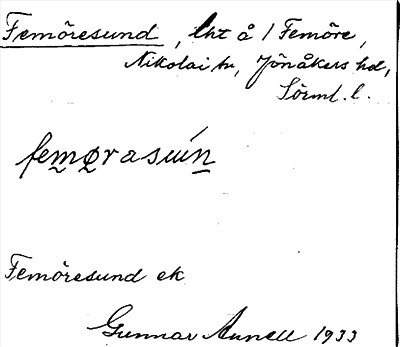 Femöresund, lht å / Femöre,
Nikolai sn, Jönåkers hd,
Sörml. l.
femøra suń
Femöresund ek
Gunnar Annell 1933